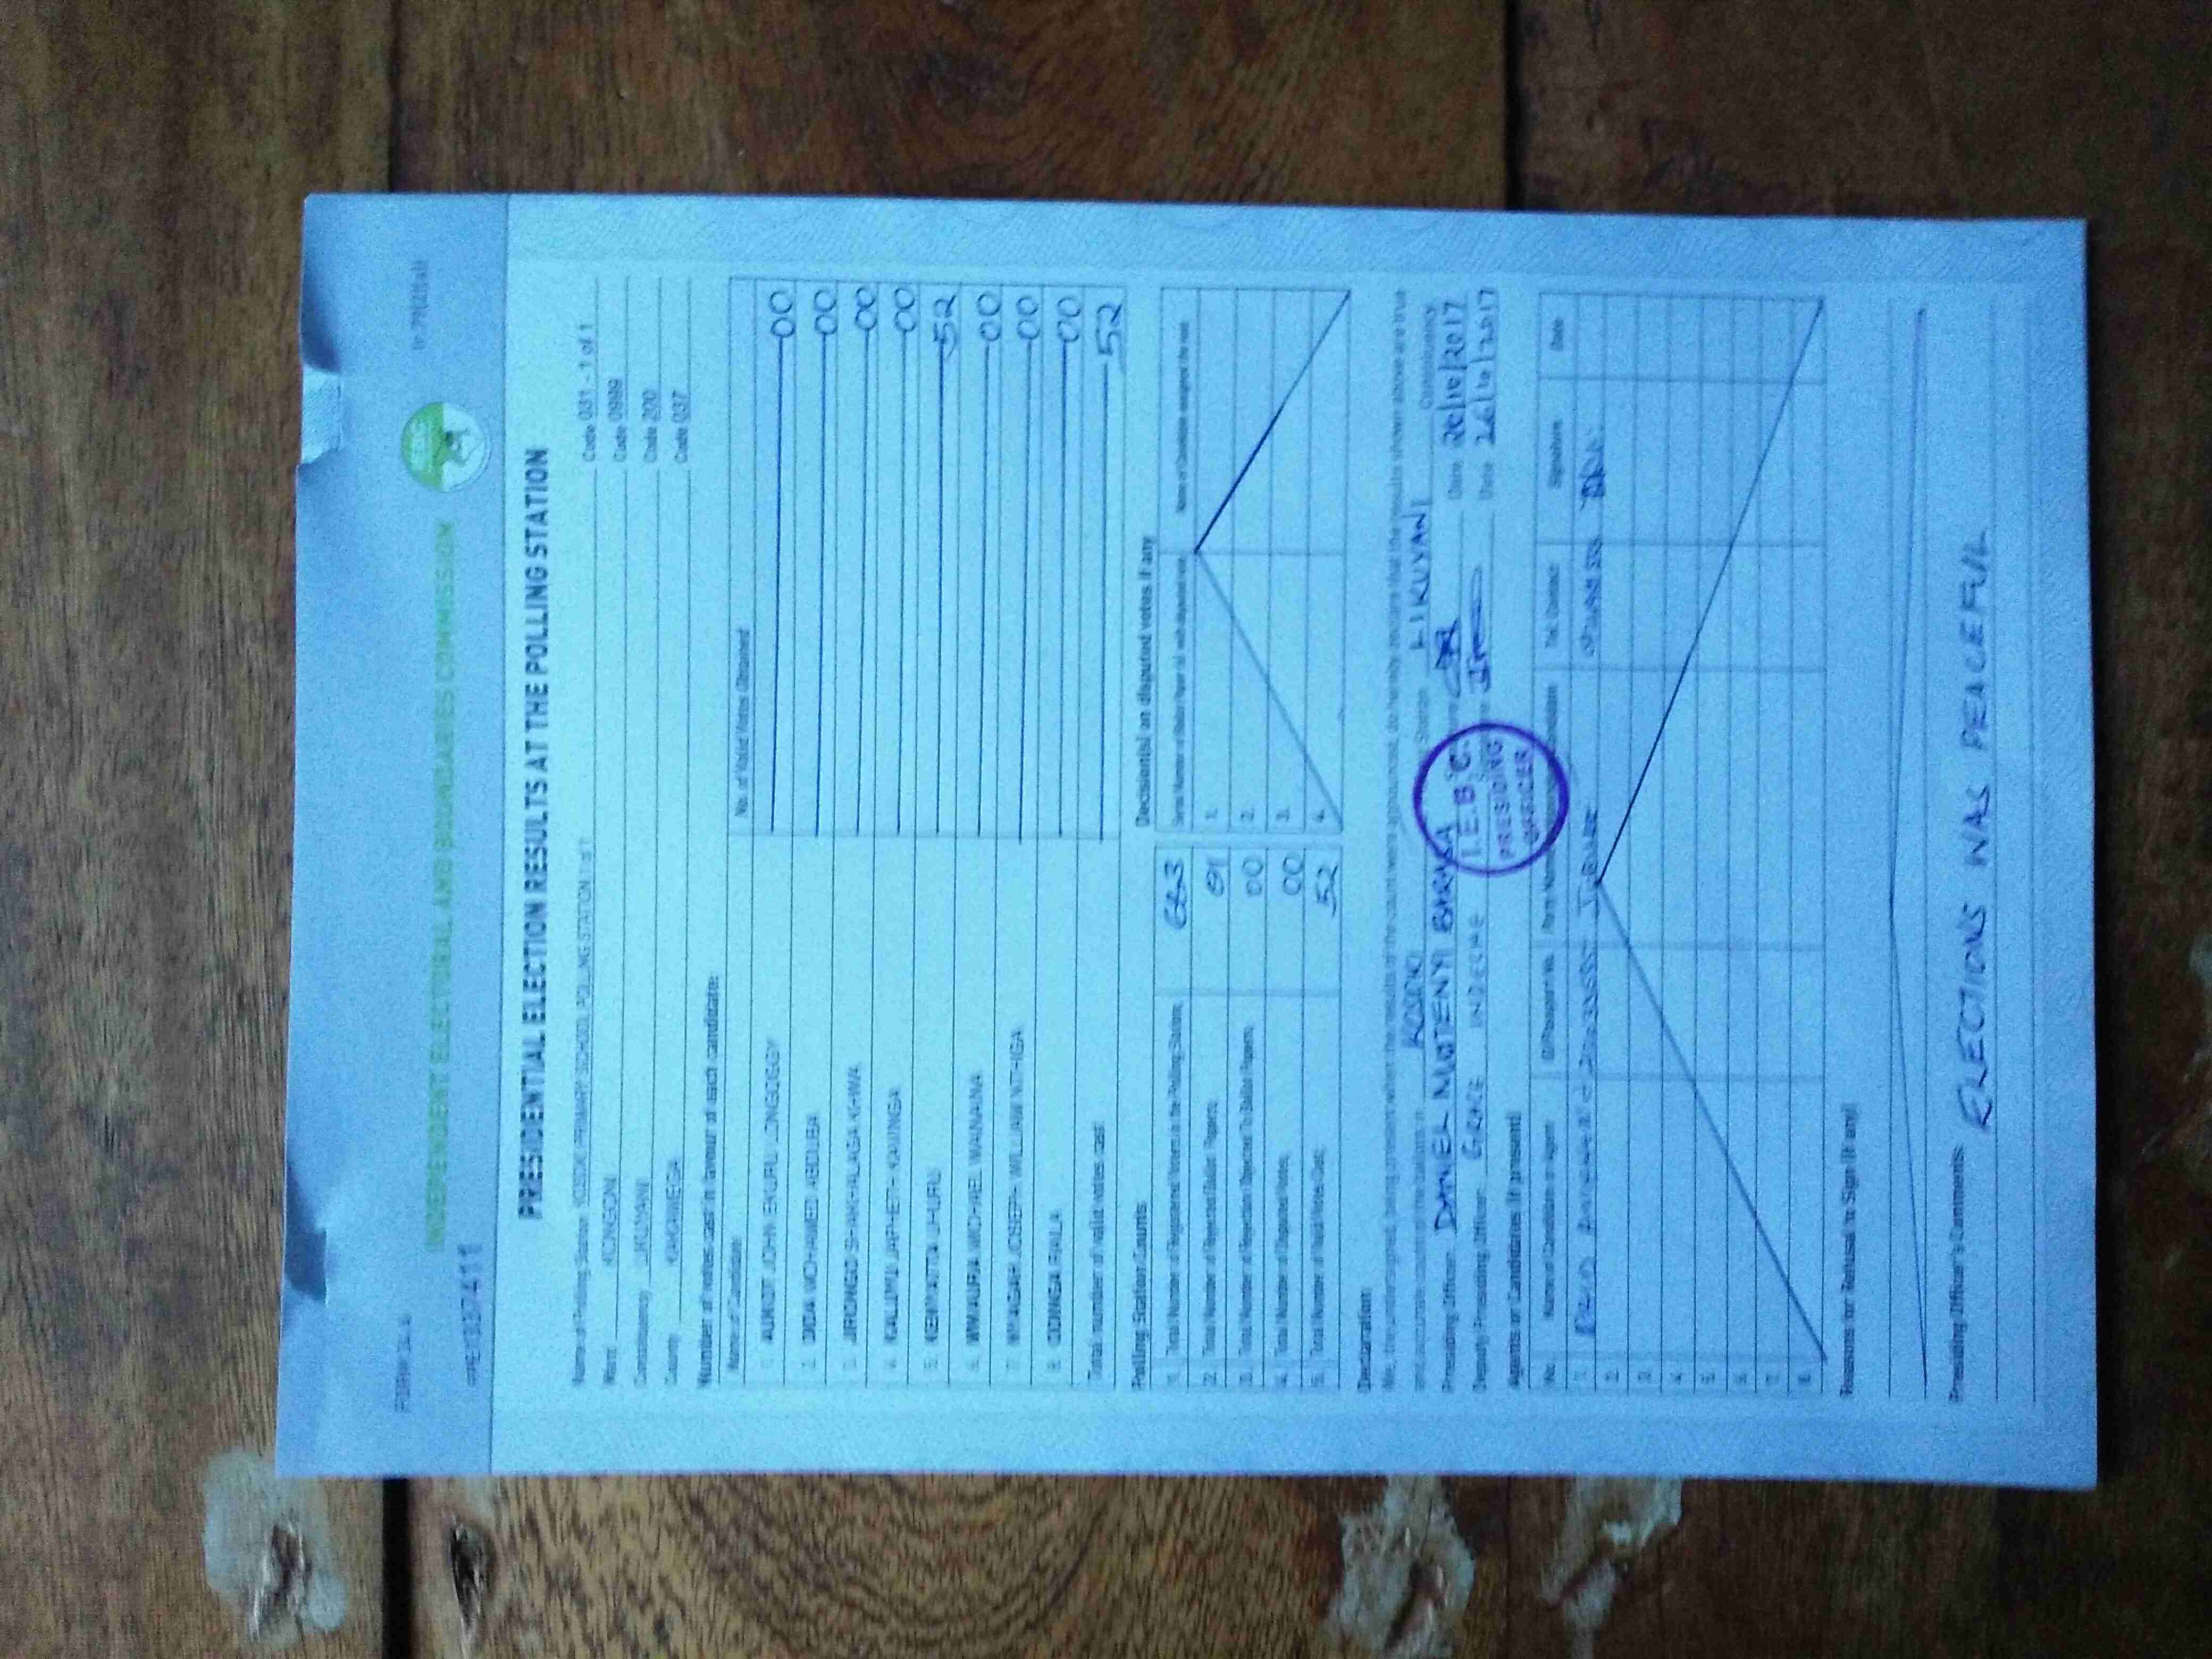 FORM 34 A
INDEPENDENT ELECTORAL AND BOUNDARIES COMMISSION
PRESIDENTIAL ELECTION RESULTS AT THE POLLING STATION
Name of Polling Station PRIMARY SCHOOL POLLING STATION 1 of 1 Code 031 - 1 of 1
Ward KONGONI Code 0999
Constituency LIKUYANI Code 200
County KAKAMEGA Code 037
Number of votes cast in favour of each candidate:
Name of Candidate No. of Valid Votes Obtained
1. AUKOT JOHN EKURU LONGOGGY 00
2. DIDA MOHAMED ABDUBA 00
3. JIRONGO SHAKHALAGA KHWA 00
4. KALUYU JAPHETH KAVINGA 00
5. KENYATTA UHURU 52
6. MWAURA MICHAEL WAINAINA 00
7. NYAGAH JOSEPH WILLIAM NTHIGA 00
8. ODINGA RAILA 00
Total number of valid votes cast 52
Polling Station Counts
1. Total Number of Registered Voters in the Polling Station
2. Total Number of Rejected Ballot Papers 01
3. Total Number of Rejection Objected To Ballot Papers 00
4. Total Number of Disputed Votes 00
5. Total Number of Valid Votes Cast 52
Decision(s) on disputed votes if any
Serial Number of Ballot Paper (s) with disputed vote Name of Candidate assigned the vote
1.
2.
3.
4.
Declaration
We, the undersigned, being present when the results of the count were announced, do hereby declare that the results shown above are true
and accurate count of the ballots in Station LIKUYANI Constituency
Presiding Officer DANIEL MUTENYI BARASA Date 26/10/2017
Deputy Presiding Officer GRACE Date 26/10/2017
I.E.B.C.
PRESIDING
OFFICER
Agents or Candidates (if present)
No. Name of Candidate or Agent ID/Passport No. Tel. Contact Signature Date
1. JUBILEE
2.
3.
4.
5.
6.
7.
8.
Reasons for Refusal to Sign (if any)
Presiding Officer's Comments ELECTIONS WAS PEACEFUL